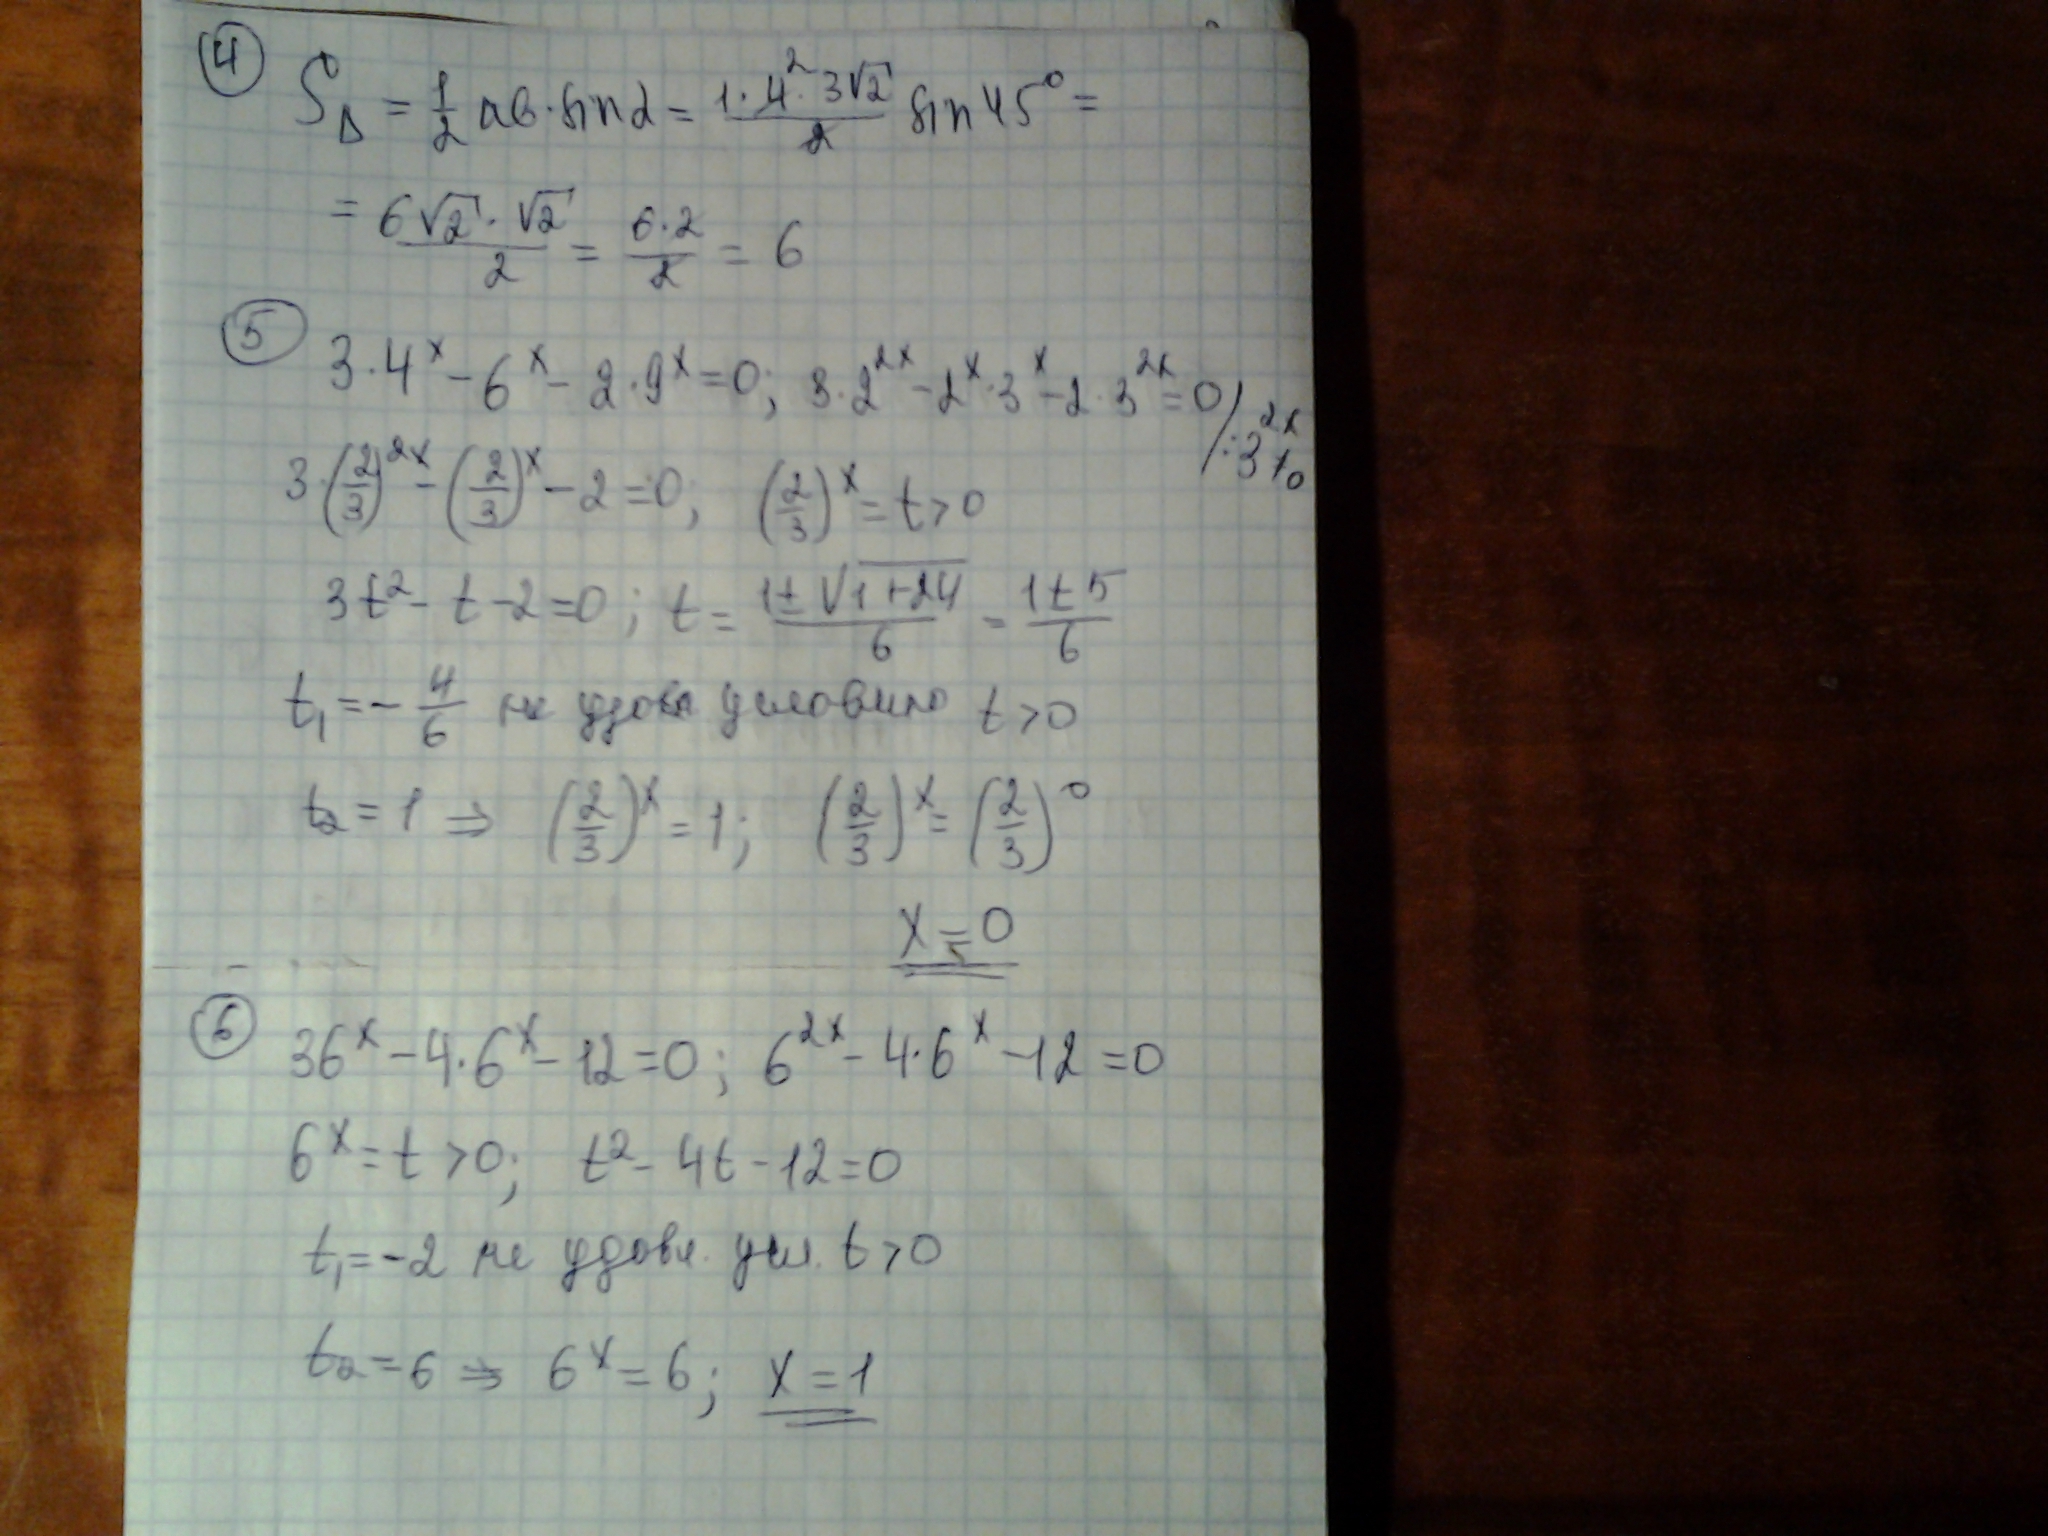 4
S_Δ = 1/2 ab·sinα = (1·4²·3√2)/2 sin45° =
= (6√2·√2)/2 = (6·2)/2 = 6
5
3·4^x - 6^x - 2·9^x = 0; 3·2^(2x) - 2^x·3^x - 2·3^(2x) = 0 / :3^(2x) ≠ 0
3·(2/3)^(2x) - (2/3)^x - 2 = 0; (2/3)^x = t > 0
3t² - t - 2 = 0; t = (1±√(1+24))/6 = (1±5)/6
t₁ = -4/6 не удовл условию t > 0
t₂ = 1 ⇒ (2/3)^x = 1; (2/3)^x = (2/3)^0
x = 0
6
36^x - 4·6^x - 12 = 0; 6^(2x) - 4·6^x - 12 = 0
6^x = t > 0; t² - 4t - 12 = 0
t₁ = -2 не удовл. усл. t > 0
t₂ = 6 ⇒ 6^x = 6; x = 1